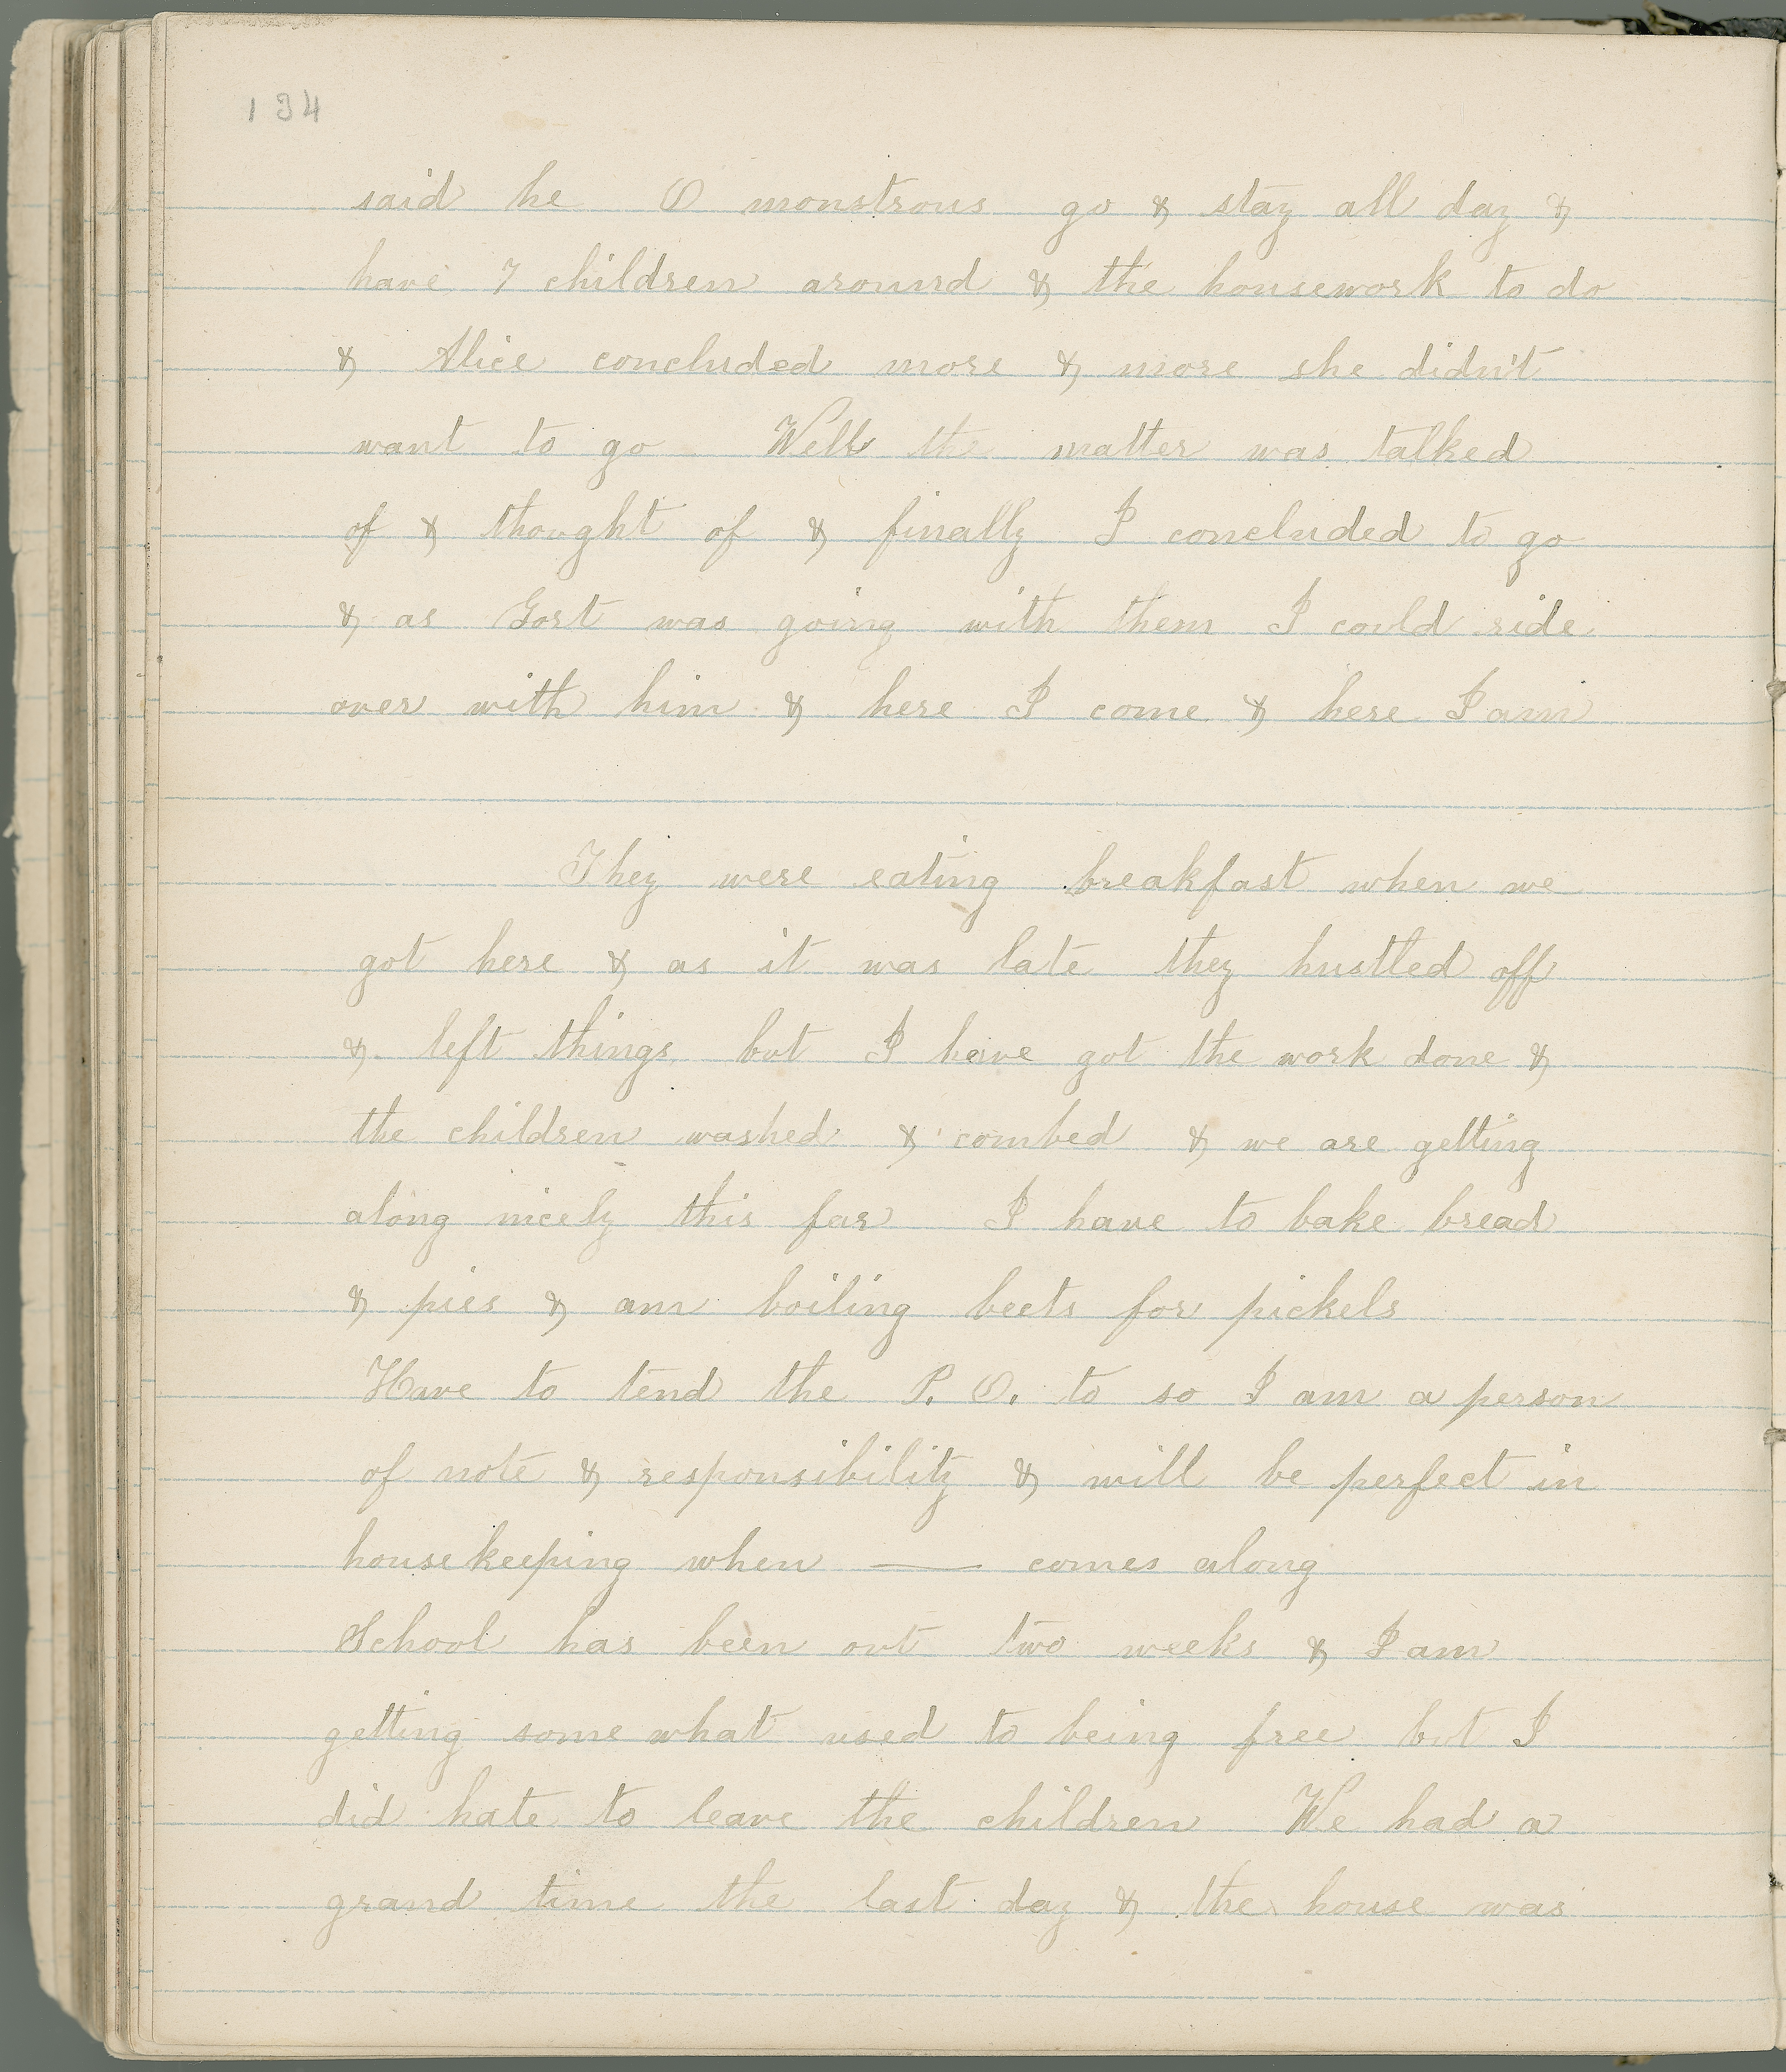 134
said he O monstrous go & stay all day &
have 7 children around & the housework to do
& Alice concluded more & more she didn't
want to go Well the matter was talked
of & thought of & finally I concluded to go
& as Gort was going with them I could ride
over with him & here I come & here I am
They were eating breakfast when we
got here & as it was late they hustled off
& left things but I have got the work done &
the children washed & combed & we are getting
along nicely this far I have to bake bread
& pies & am boiling beets for pickels
Have to tend the P. O. to so I am a person
of note & responsibility & will be perfect in
housekeeping when —— comes along
School has been out two weeks & I am
getting some what used to being free but I
did hate to leave the children We had a
grand time the last day & the house was